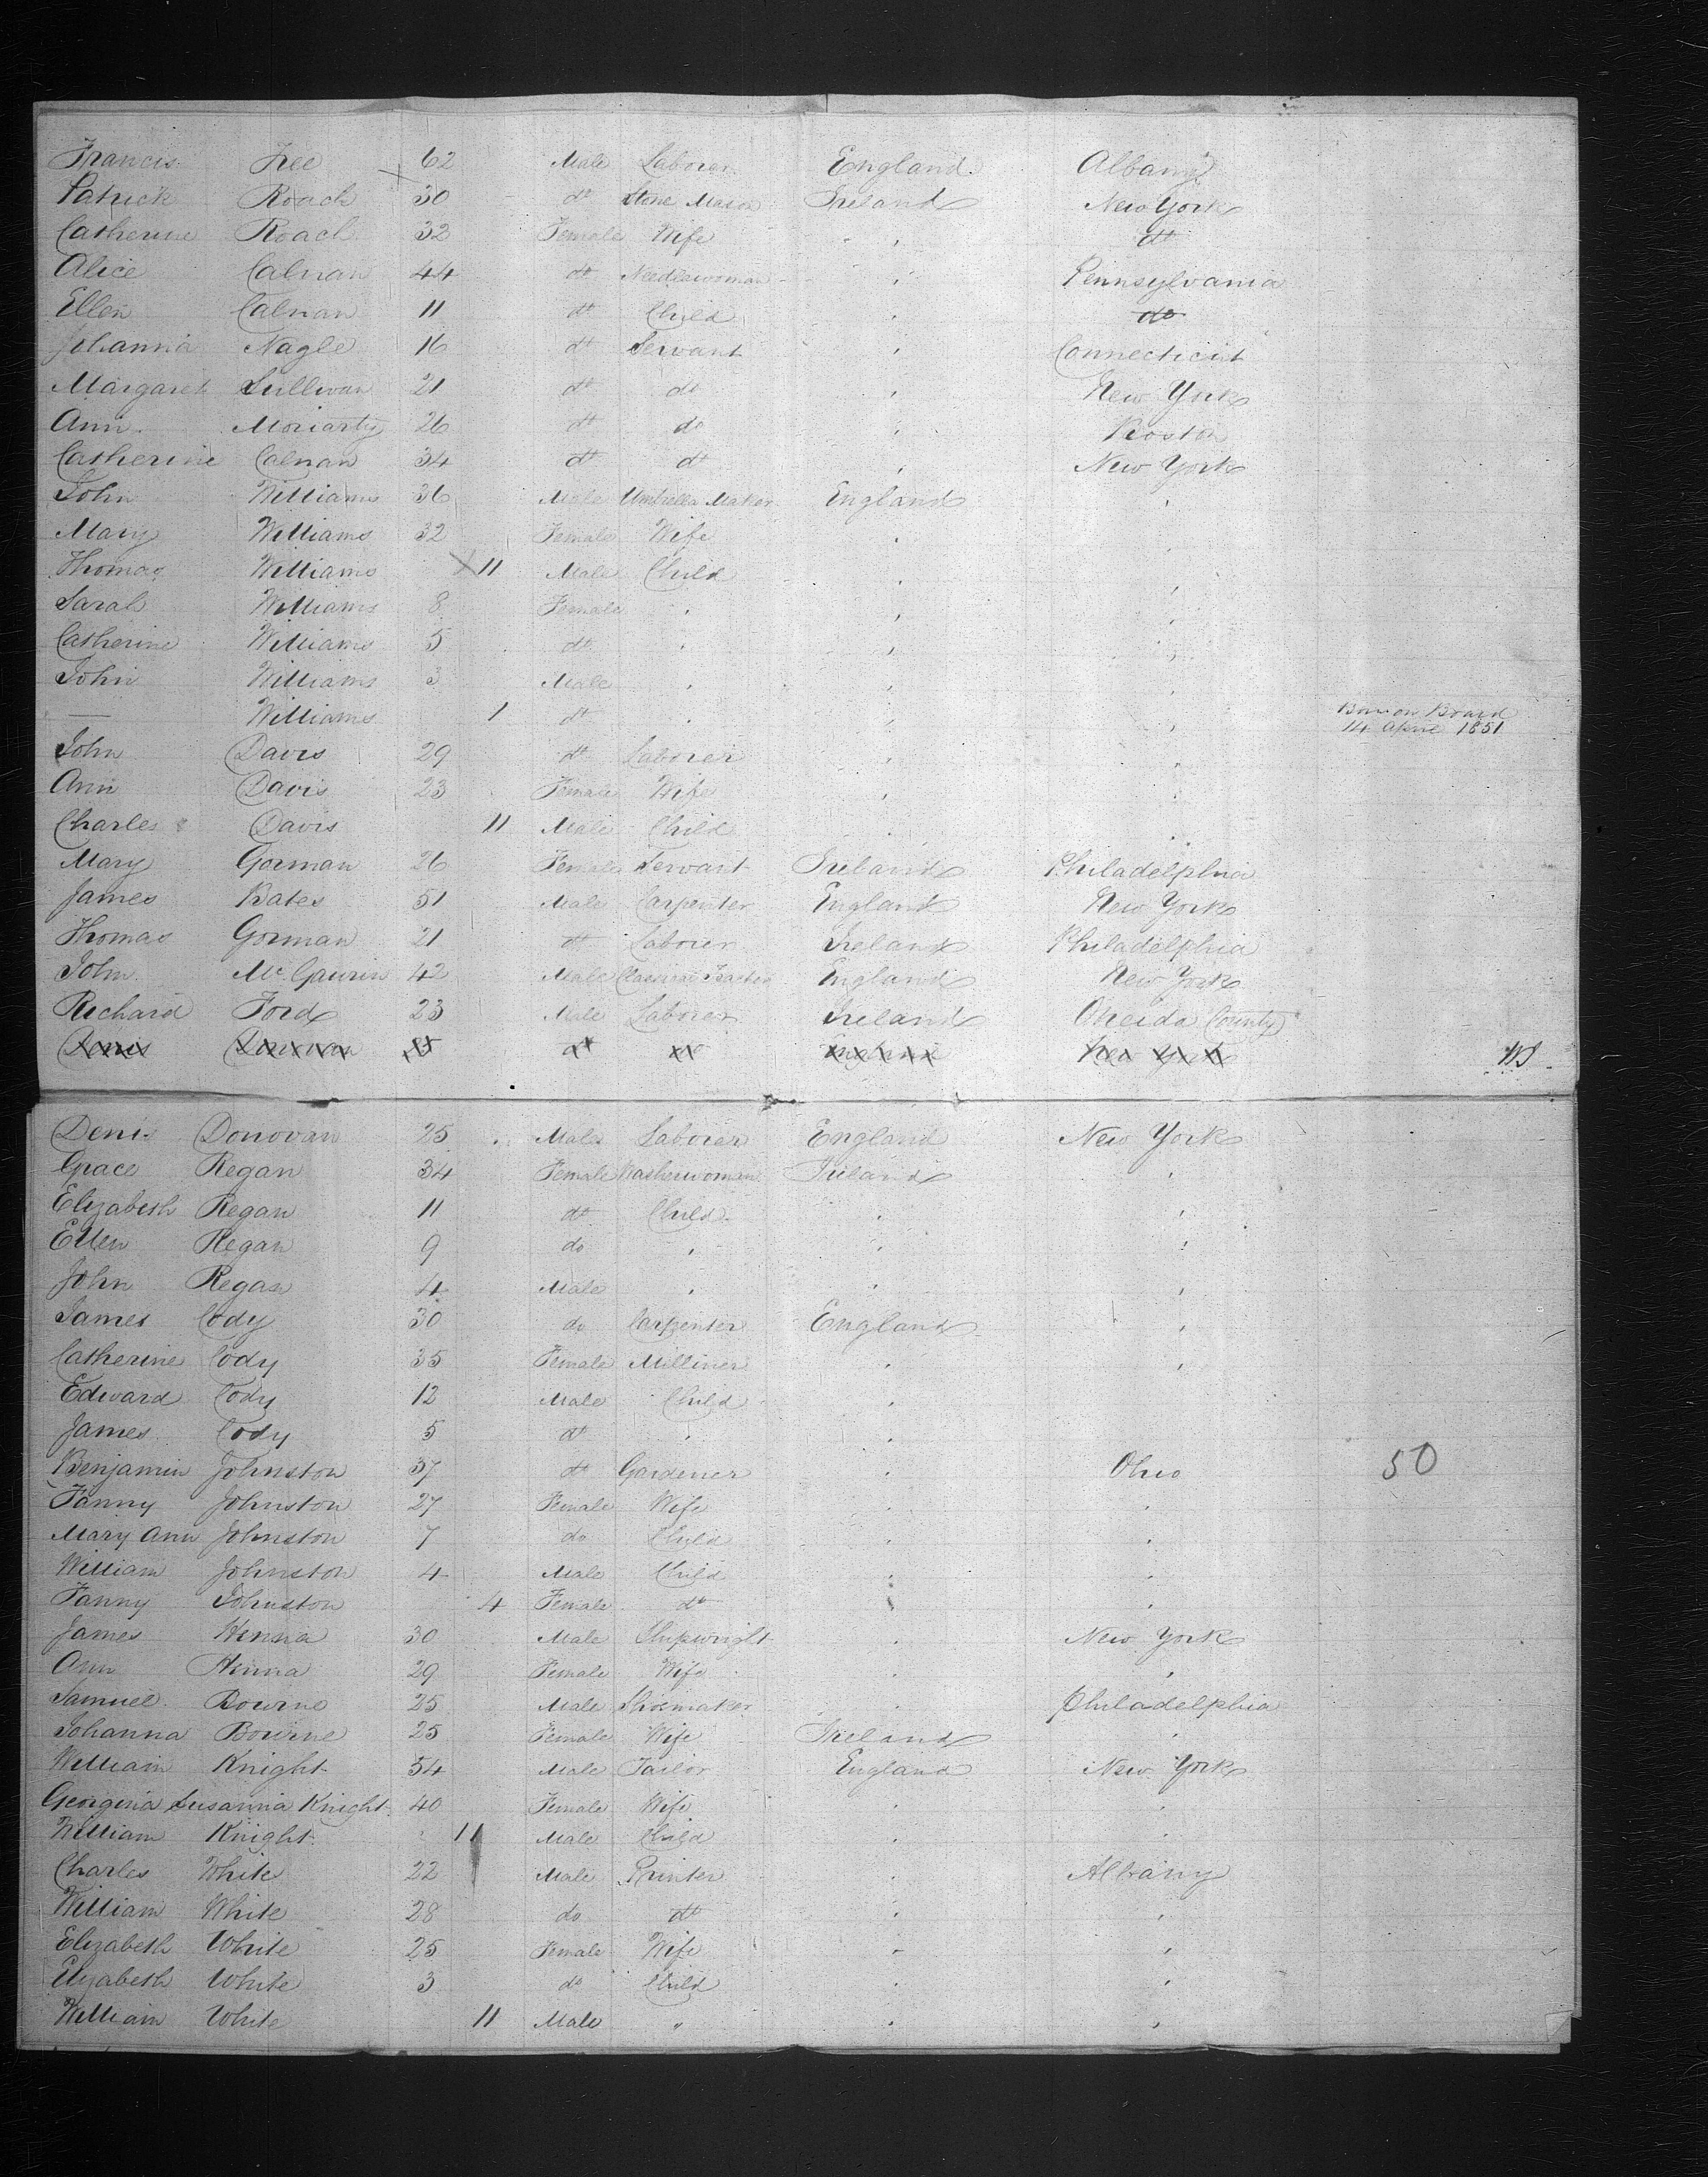 Francis Free 62 Male Laborer England Albany
Patrick Roach 30 do Stone Mason Ireland New York
Catherine Roach 32 Female Wife " do
Alice Calnan 44 do Needlewoman " Pennsylvania
Ellen Calnan 11 do Child " do
Johanna Nagle 16 do Servant " Connecticut
Margaret Sullivan 21 do do " New York
Ann Moriarty 26 do do " Boston
Catherine Calnan 34 do do " New York
John Williams 36 Male Umbrella Maker England "
Mary Williams 32 Female Wife " "
Thomas Williams 11 Male Child " "
Sarah Williams 8 Female " " "
Catherine Williams 5 do " " "
John Williams 3 Male " " "
— Williams 1 do " " " Born on Board
14 April 1851
John Davis 29 do Laborer " "
Ann Davis 23 Female Wife " "
Charles Davis 11 Male Child " "
Mary Gorman 26 Female Servant Ireland Philadelphia
James Bates 51 Male Carpenter England New York
Thomas Gorman 21 do Laborer Ireland Philadelphia
John 42 Male Classical England New York
Richard Ford 23 Male Laborer Ireland Oneida County
Denis Donovan 25 do do England New York
Denis Donovan 25 Male Laborer England New York
Grace Regan 34 Female Washerwoman Ireland "
Elizabeth Regan 11 do Child " "
Ellen Regan 9 do " " "
John Regan 4 Male " " "
James Cody 30 do Carpenter England "
Catherine Cody 35 Female Milliner " "
Edward Cody 12 Male Child "
James Cody 5 do " "
Benjamin Johnston 37 do Gardener " Ohio 50
Fanny Johnston 27 Female Wife " "
Mary Ann Johnston 7 do Child " "
William Johnston 4 Male Child " "
Fanny Johnston 4 Female do " "
James Henna 30 Male Shipwright " New York
Ann Henna 29 Female Wife " "
Samuel Bourne 25 Male Shoemaker " Philadelphia
Johanna Bourne 25 Female Wife Ireland "
William Knight 54 Male Tailor England New York
Georgina Susanna Knight 40 Female Wife " "
William Knight 11 Male Child " "
Charles White 22 Male Printer " Albany
William White 28 do do " "
Elizabeth White 25 Female Wife " "
Elizabeth White 3 do Child " "
William White 11 Male " " "